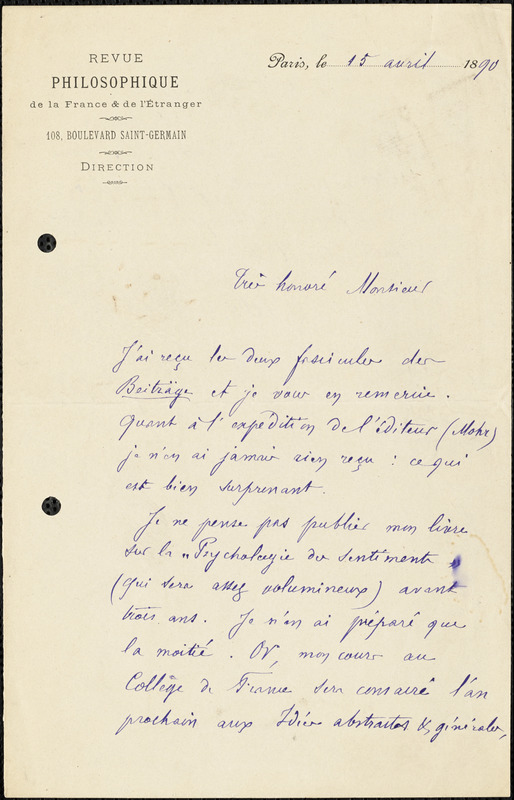 REVUE
PHILOSOPHIQUE
de la France & de l'Étranger
108, BOULEVARD SAINT-GERMAIN
DIRECTION
Paris, le 15 avril 1890
Très honoré Monsieur
J'ai reçu les deux fascicules des
Beiträge et je vous en remercie.
Quant à l'expédition de l'éditeur (Mohr)
je n'en ai jamais rien reçu : ce qui
est bien surprenant.
Je ne pense pas publier mon livre
sur la „Psychologie des sentiments"
(qui sera assez volumineux) avant
trois ans. Je n'en ai préparé que
la moitié. Or, mon cours au
Collège de France sera consacré l'an
prochain aux Idées abstraites & générales,